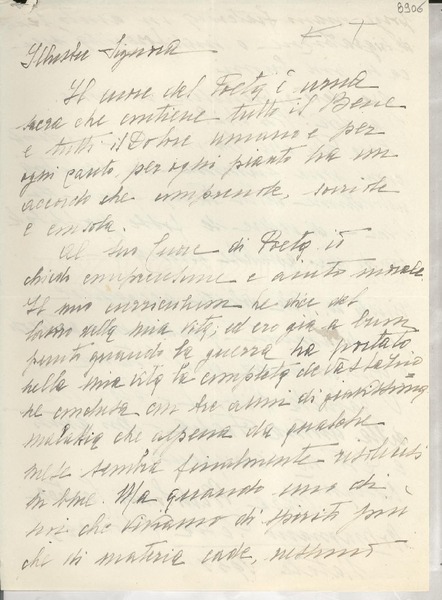 8306
Illustre Signora
Il cuore del Poeta è una
sacra che contiene tutto il Bene
e tutto il Dolore umano e per
ogni canto, per ogni pianto ha un
accordo che comprende, sorride
e consola.
Al suo Cuore di Poeta io
chiedo comprensione e aiuto morale.
Il mio curriculum le dice del
lavoro della mia vita; ed ero già a buon
punto quando la guerra ha portato
nella mia vita la completa devastazione
conclusa con tre anni di gravissima
malattia che appena da qualche
mese sembra finalmente risolversi
in bene. Ma quando uno di
noi che viviamo di spirito più
che di materia cade, nessuno